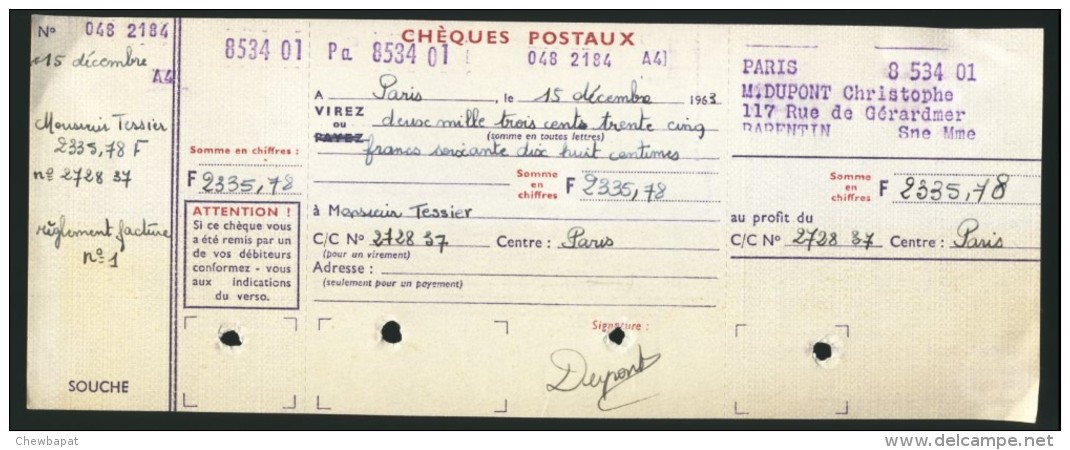 No 048 2184
15 décembre
A4
Monsieur Tessier
2335,78 F
nº 2728 37
règlement facture
nº 1
SOUCHE
8534 01
Somme en chiffres :
F 2335,78
ATTENTION !
Si ce chèque vous
a été remis par un
de vos débiteurs
conformez - vous
aux indications
du verso.
CHÈQUES POSTAUX
Pa 8534 01 048 2184 A4
A Paris, le 15 décembre 1963
VIREZ deux mille trois cents trente cinq
ou (somme en toutes lettres)
PAYEZ francs soixante dix huit centimes
Somme
en
chiffres
F 2335,78
à Monsieur Tessier
C/C No 2728 37 Centre : Paris
(pour un virement)
Adresse :
(seulement pour un payement)
Signature :
Dupont
PARIS 8 534 01
M.DUPONT Christophe
117 Rue de Gérardmer
BARENTIN Sne Mme
Somme
en
chiffres
F 2335,78
au profit du
C/C No 2728 37 Centre : Paris
Chewbapat
www.delcampe.net